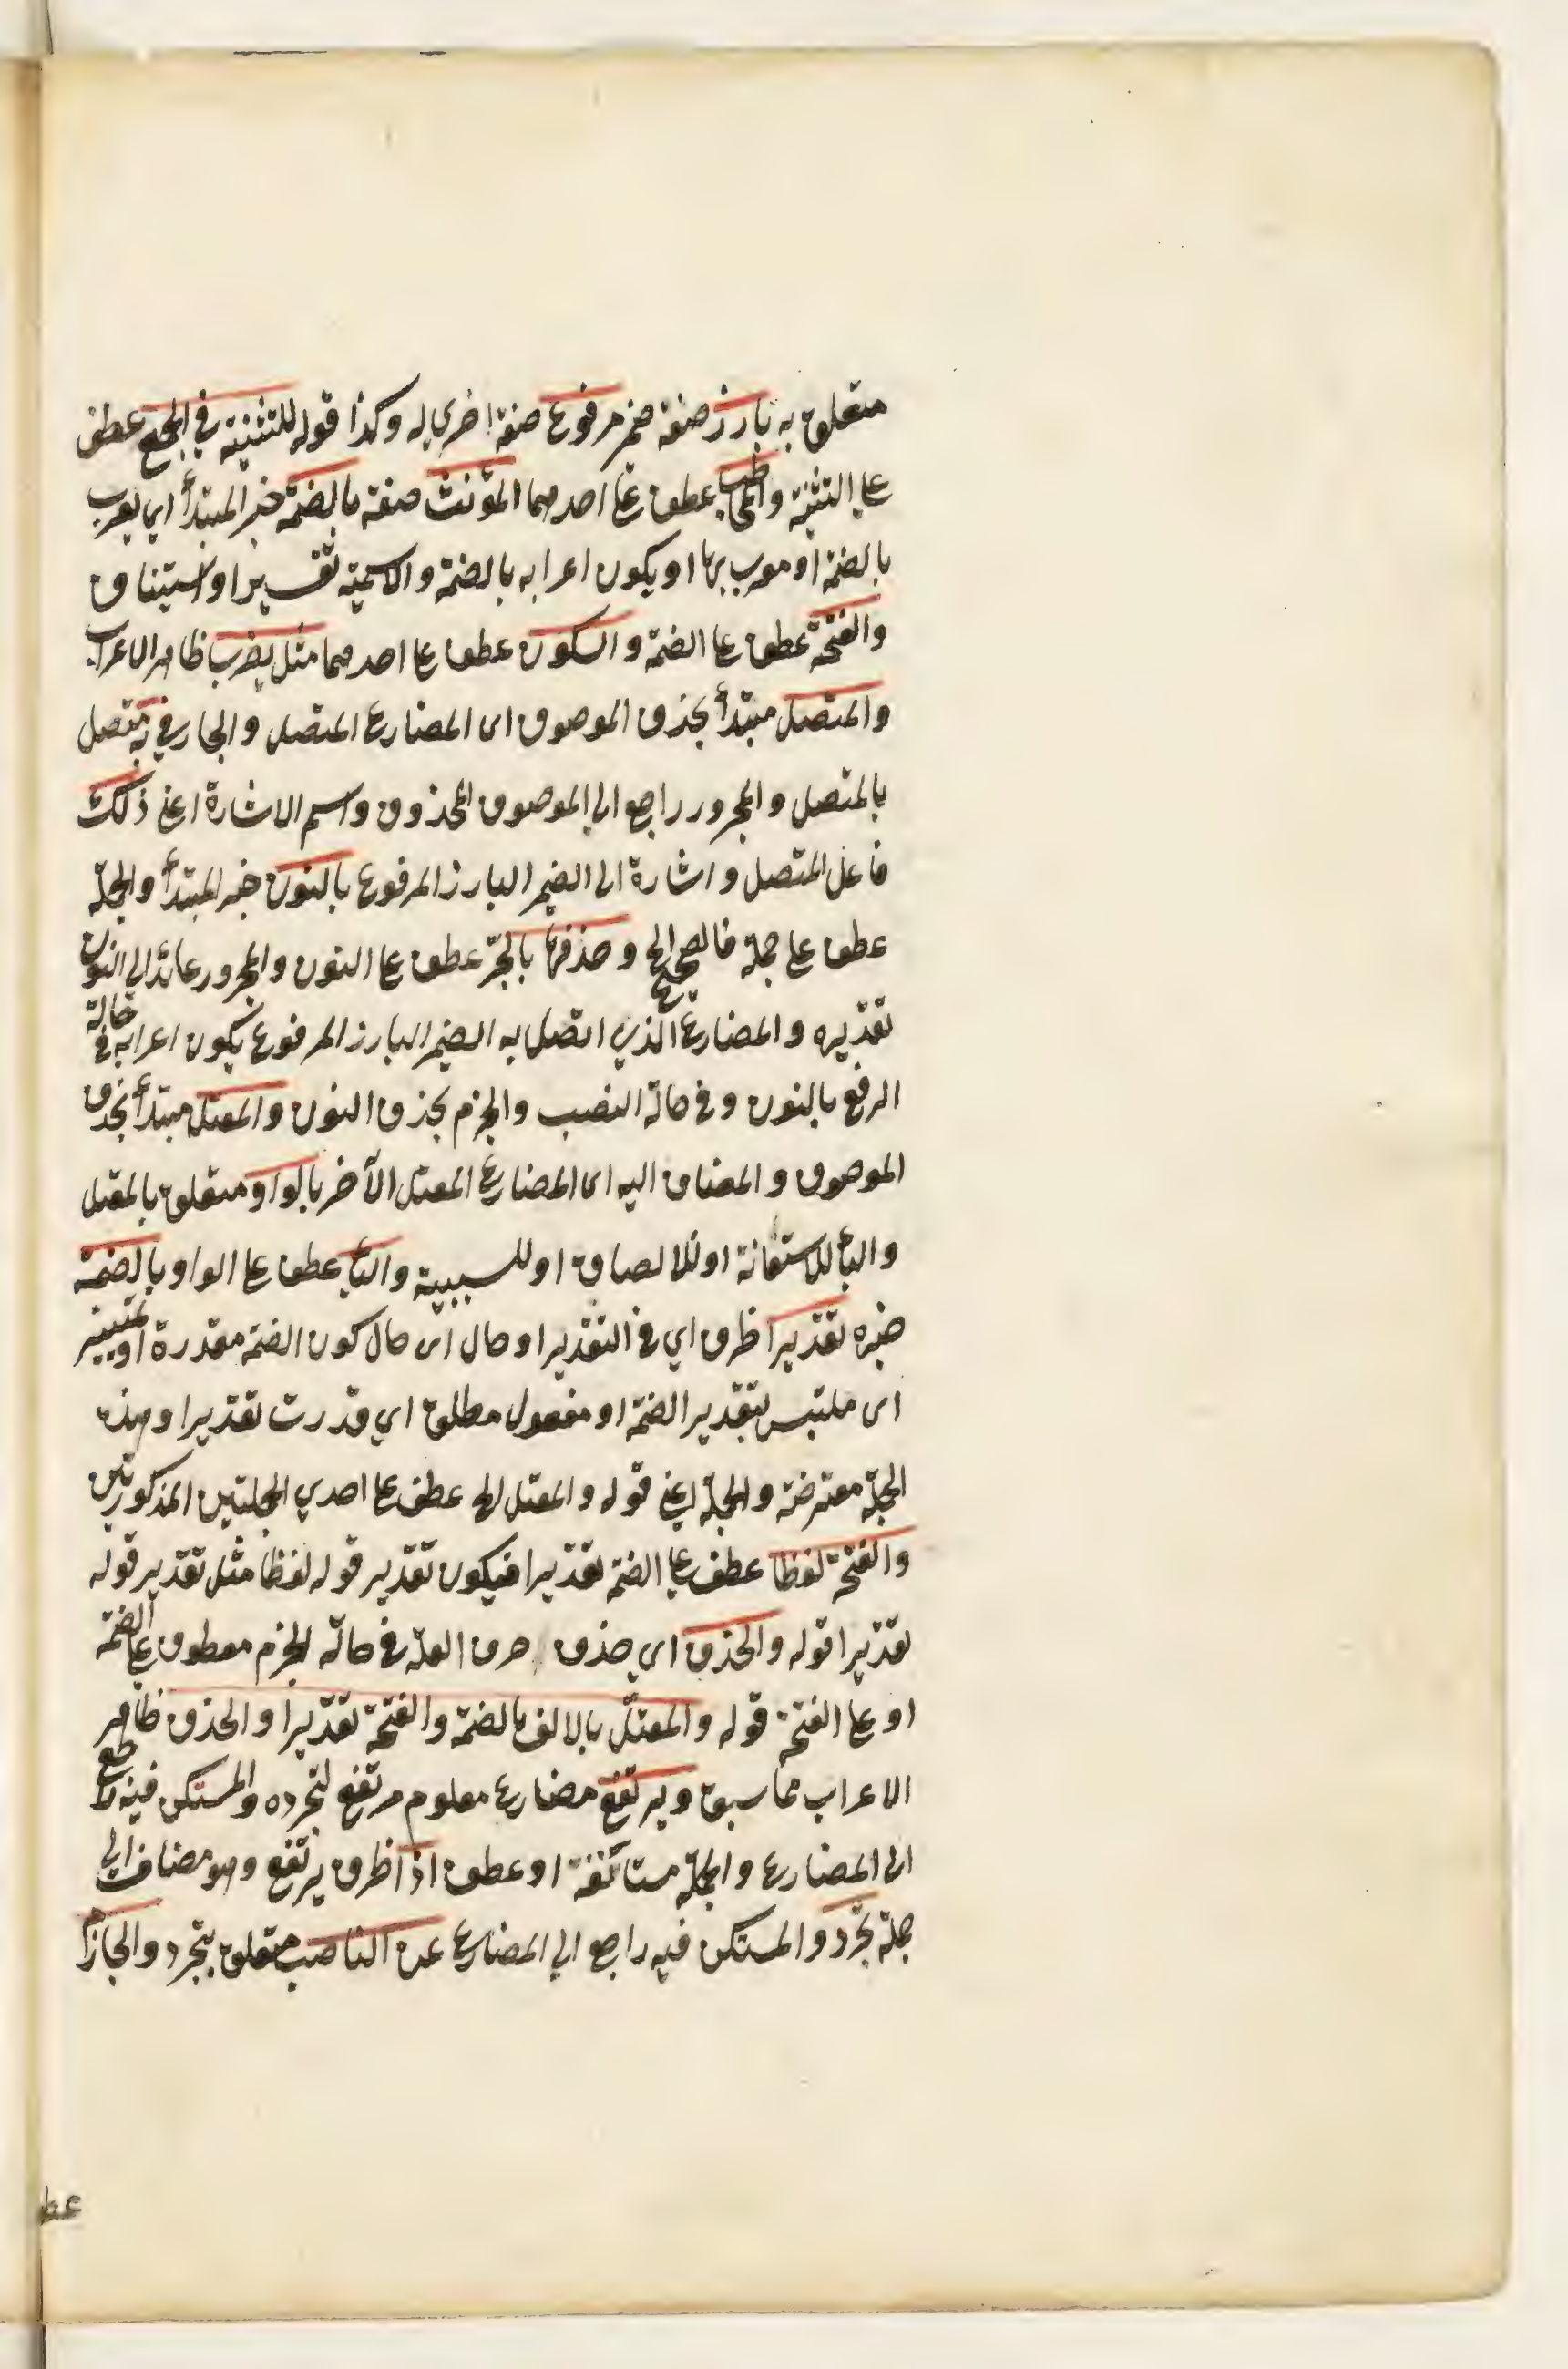 متعلق به بارز صفة ضمير مرفوع صفة اخرى له وكذا قوله للتثنية في الجمع عطف
على التثنية والمخاطب عطف على احدهما المؤنث صفة بالضمة خبر المبتدأ اي يعرب
بالضمة او معرب بها او يكون اعرابه بالضمة والاسمية تفسير او استيناف
والفتحة عطف على الضمة والسكون عطف على احدهما مثل يضرب ظاهر الاعراب
والمتصل مبتدأ بحذف الموصوف اى المضارع المتصل والجار في به متصل
بالمتصل والمجرور راجع الى الموصوف المحذوف واسم الاشارة اعني ذلك
فاعل المتصل واشارة الى الضمير البارز المرفوع بالنون خبر المبتدأ والجملة
عطف على جملة فالصحيح الخ وحذفها بالجر عطف على النون والمجرور عائد الى النون
تقديره والمضارع الذي اتصل به الضمير البارز المرفوع يكون اعرابه في حالة
الرفع بالنون وفي حالة النصب والجزم بحذف النون والمعتل مبتدأ بحذف
الموصوف والمضاف اليه اى المضارع المعتل الآخر بالواو متعلق بالمعتل
والبأ للاستعانة او للالصاق او للسببية واليأ عطف على الواو بالضمة
خبره تقديرا ظرف اي في التقدير او حال اى حال كون الضمة مقدرة او تمييز
اى ملتبس بتقدير الضمة او مفعول مطلق اي قدرت تقديرا وهذه
الجملة معترضة والجملة اعني قوله والمعتل الخ عطف على احدي الجملتين المذكورتين
والفتحة لفظا عطف على الضمة تقديرا فيكون تقدير قوله لفظا مثل تقدير قوله
تقديرا قوله والحذف اي حذف حرف العلة في حالة الجزم معطوف على الضمة
او على الفتحة قوله والمعتل بالالف بالضمة والفتحة تقديرا والحذف ظاهر
الاعراب مما سبق ويرتفع مضارع معلوم مرتفع لتجرده والمستكن فيه راجع
الى المضارع والجملة مستأنفة او عطف اذا ظرف يرتفع وهو مضاف الى
جملة تجرد والمستكن فيه راجع الى المضارع عن الناصب متعلق بتجرد والجازم
عطف